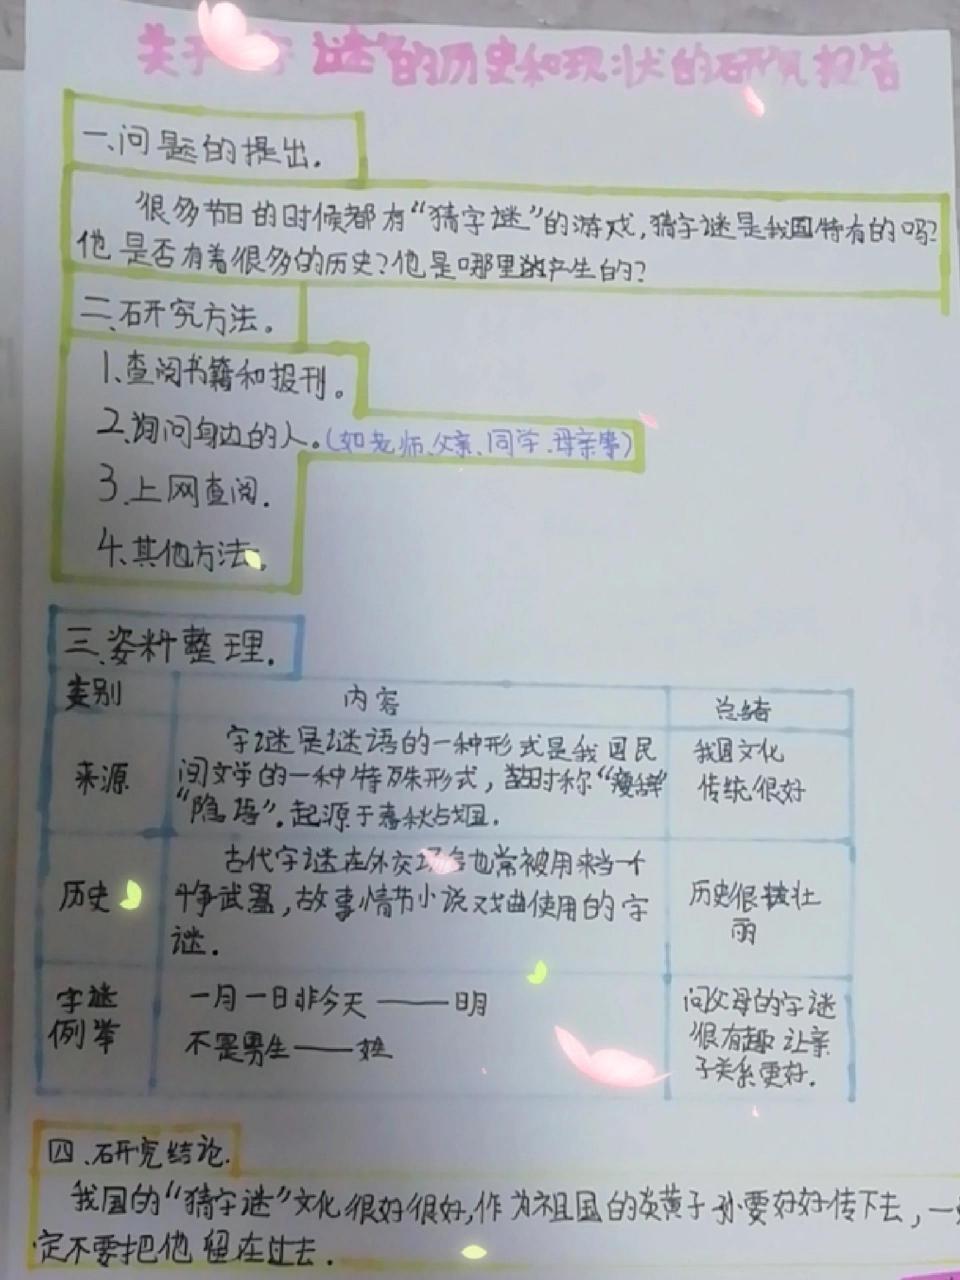 关于 字 谜的历史和现状的研究报告
一.问题的提出.
很多节日的时候都有“猜字谜”的游戏,猜字谜是我国特有的吗?
他是否有着很多的历史?他是哪里产生的?
二.研究方法。
1.查阅书籍和报刊。
2.询问身边的人。(如老师、父亲、同学、母亲等)
3.上网查阅.
4.其他方法。
三.资料整理.
类别 内容 总结
来源
字谜是谜语的一种形式是我国民
间文学的一种特殊形式,当时称“廋辞”
“隐语”.起源于春秋战国.
我国文化
传统很好
历史
古代字谜在外交场合也常被用来当一个
斗争武器,故事情节小说戏曲使用的字
谜.
历史很壮
丽
字谜
例举
一月一日非今天——明
不是男生——姓
问父母的字谜
很有趣让亲
子关系更好.
四.研究结论.
我国的“猜字谜”文化很好很好,作为祖国的炎黄子孙要好好传下去,一
定不要把他留在过去.